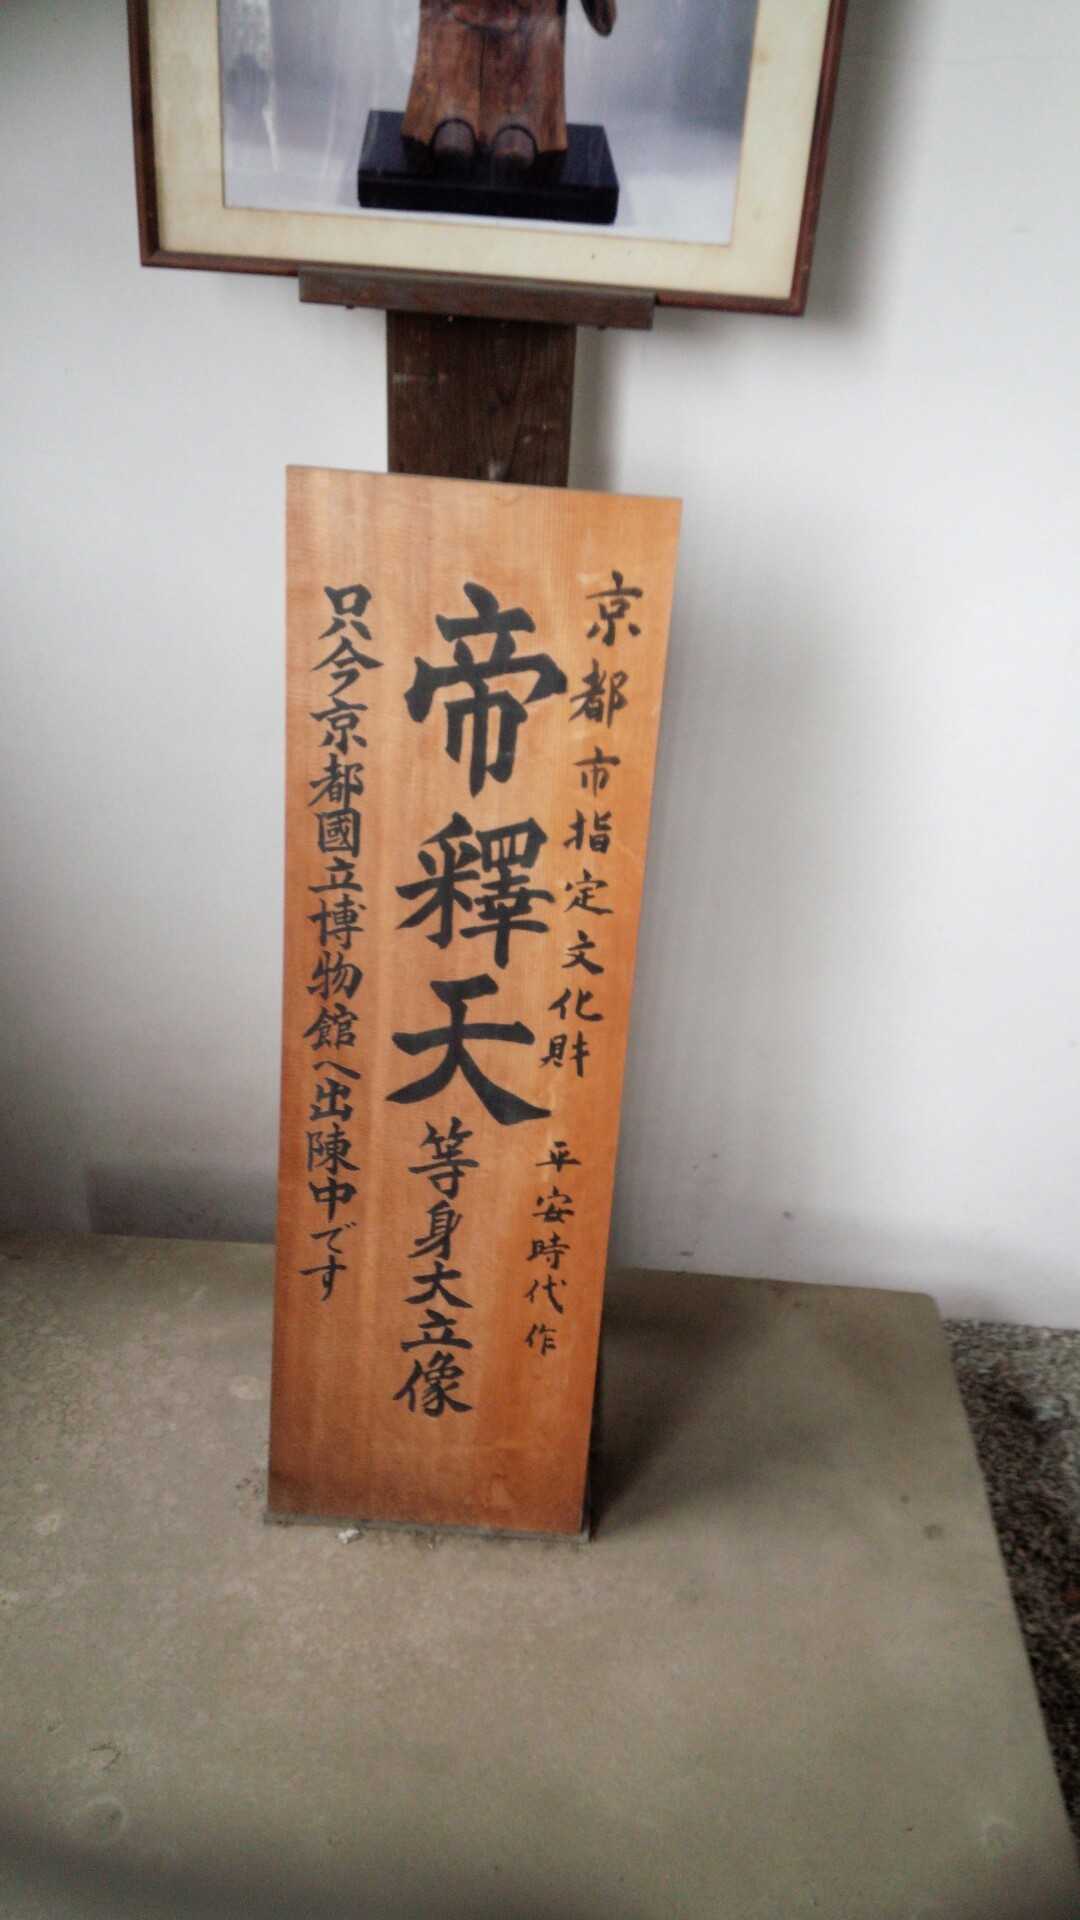 京都市指定文化財 平安時代作
帝釋天等身大立像
只今京都國立博物館へ出陳中です